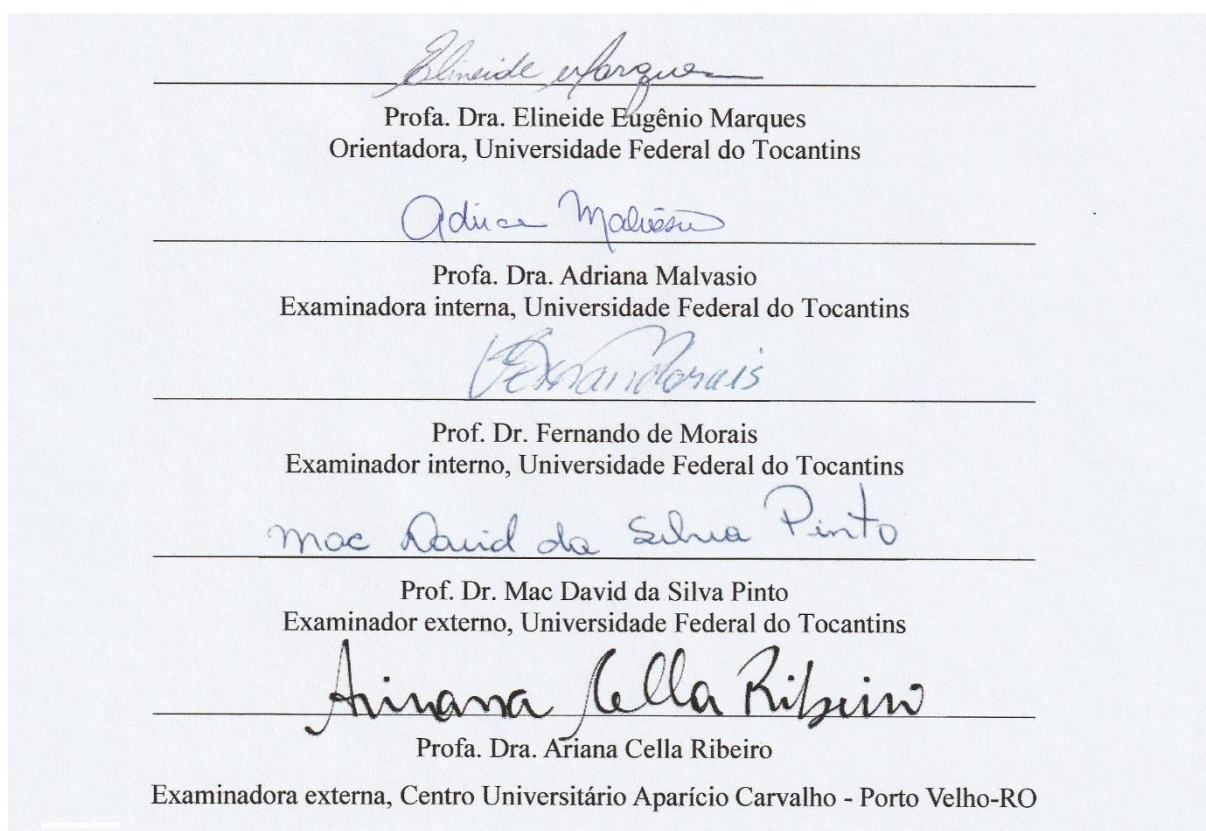 Elineide Marques
Profa. Dra. Elineide Eugênio Marques
Orientadora, Universidade Federal do Tocantins
Malvasio
Profa. Dra. Adriana Malvasio
Examinadora interna, Universidade Federal do Tocantins
Morais
Prof. Dr. Fernando de Morais
Examinador interno, Universidade Federal do Tocantins
Mac David da Silva Pinto
Prof. Dr. Mac David da Silva Pinto
Examinador externo, Universidade Federal do Tocantins
Ariana Cella Ribeiro
Profa. Dra. Ariana Cella Ribeiro
Examinadora externa, Centro Universitário Aparício Carvalho - Porto Velho-RO